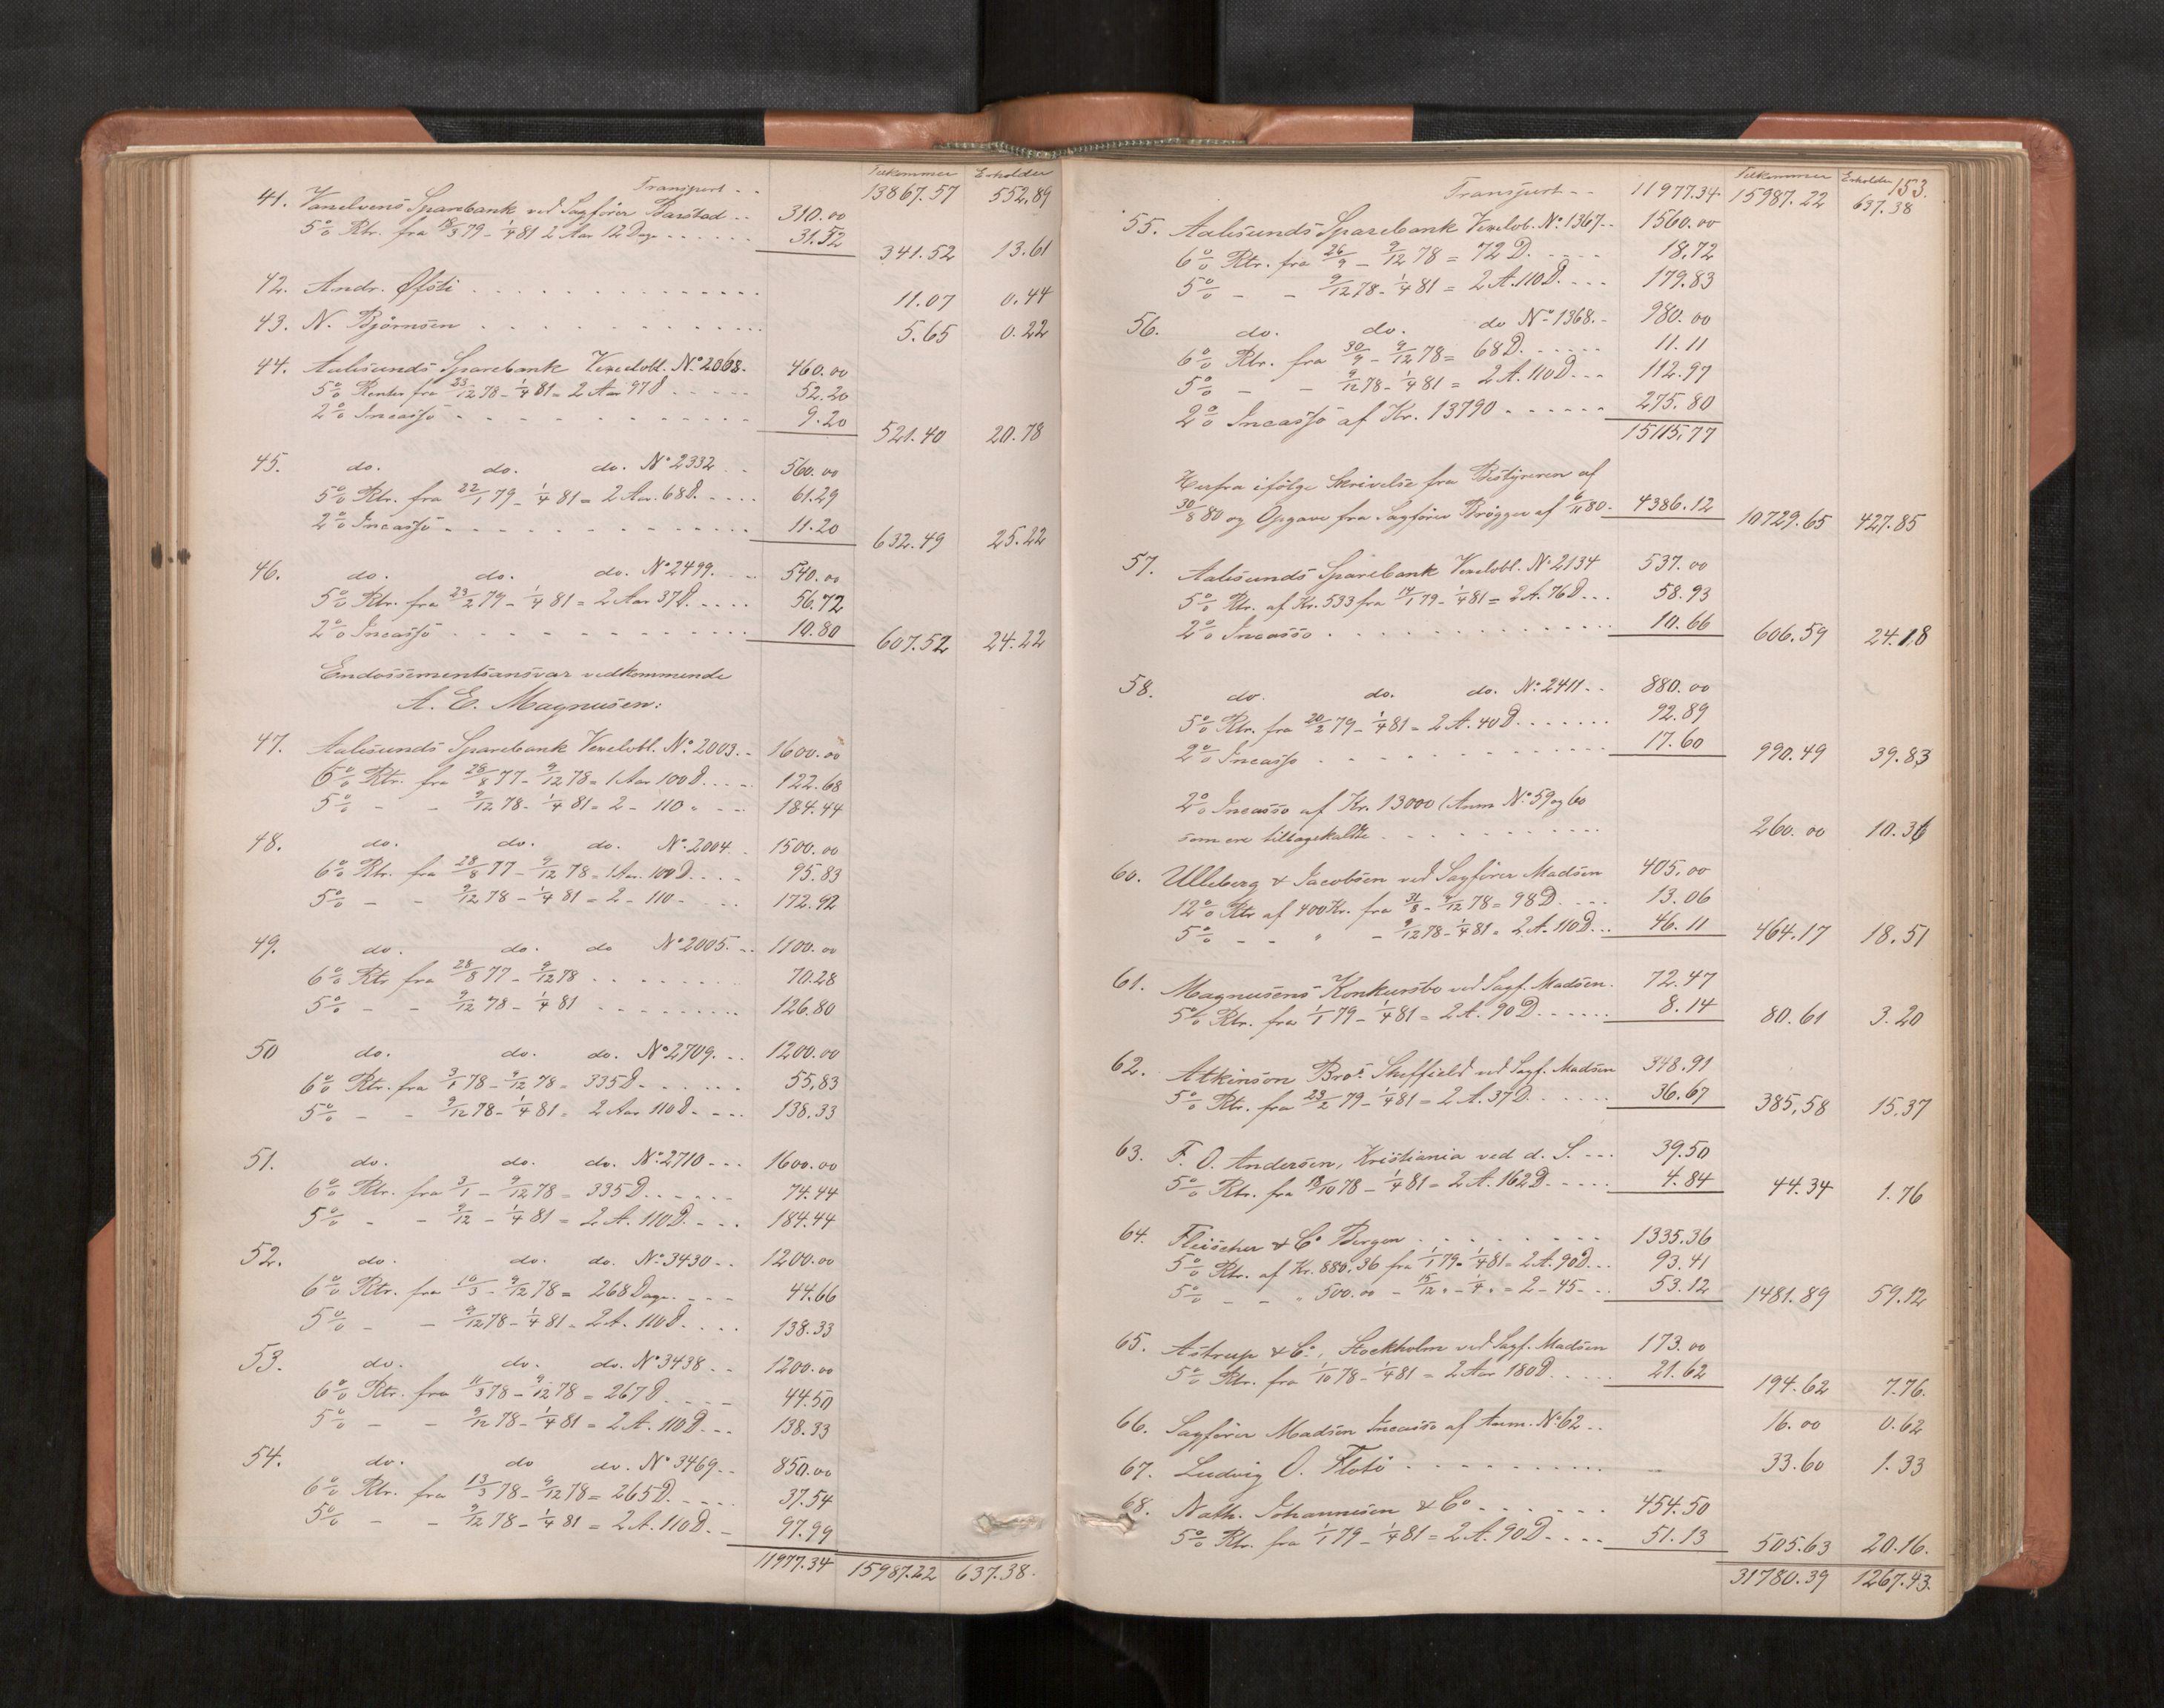 Tilkommer Erholder
Transport - - 13867.57 552.89
41. Vanelvens Sparebank ved Sagfører Barstad - - 310.00
5% Rtr. fra 18/3 79 - 1/4 81 2 Aar 12 Dage - - - - - - 31.52 341.52 13.61
42. Andr. Øfsti . . . . . . . . . . 11.07 0.44
43. N. Bjørnsen . . . . . . . . . . 5.65 0.22
44. Aalesunds Sparebank Vexelobl. No. 2068. 460.00
5% Renter fra 23/12 78 - 1/4 81 = 2 Aar 97 D - - - - - 52.20
2% Incasso - - - - - - - - 9.20 521.40 20.78
45. do. do. do. No 2332 . . 560.00
5% Rtr. fra 22/1 79 - 1/4 81 = 2 Aar. 68 D. - - - - 61.29
2% Incasso - - - - - - - - 11.20 632.49 25.22
46. do. do. do. No 2499. - - 540.00
5% Rtr. fra 23/2 79 - 1/4 81 = 2 Aar 37 D. - - - - 56.72
2% Incasso . . . . . . . . 10.80 607.52 24.22
Endossementsansvar vedkommende
A. E. Magnusen:
47. Aalesunds Sparebank Vexelobl. No. 2003. - 1600.00
6% Rtr. fra 28/8 77 - 9/12 78 = 1 Aar 100 D. - - - 122.68
5% - - 9/12 78 - 1/4 81 = 2 - 110 " - - - 184.44
48. do. do. do. No. 2004. . 1500.00
6% Rtr. fra 28/8 77 - 9/12 78 = 1 Aar. 100 D. - - - 95.83
5% - - 9/12 78 - 1/4 81 = 2 - 110 - - - - 172.92
49. do. do. do No 2005. - - 1100.00
6% Rtr fra 28/8 77 - 9/12 78 . . . . . . . 70.28
5% - - 9/12 78 - 1/4 81 - - - - - - - 126.80
50 do. do. do. No 2709. - - 1200.00
6% Rtr. fra 3/1 78 - 9/12 78 = 335 D. - - - - - 55,83
5% - - 9/12 78 - 1/4 81 = 2 Aar 110 D. - - - - 138.33
51. do. do. do. No. 2710 - - - 1600.00
6% Rtr. fra 3/1 - 9/12 78 = 335 D. - - - - - 74.44
5% - - 9/12 - 1/4 81 = 2 A. 110 D. - - - 184.44
52. do. do. do. No. 3430 - - 1200.00
6% Rtr. fra 10/3 - 9/12 78 = 268 Dage. - - - 44.66
5% - - 9/12 78 - 1/4 81 = 2 A. 110 D. - - - 138.33
53. do. do. do. No 3438 - - 1200.00
6% Rtr. fra 11/3 78 - 9/12 78 = 267 D - - - - 44.50
5% - - 9/12 78 - 1/4 81 = 2 A. 110 D. - - - 138.33
54. do. do do. No 3469 - - 850.00
6% Rtr. fra 13/3 78 - 9/12 78 = 265 D. - - - - 37.54
5% - - 9/12 78 - 1/4 81 = 2 A. 110 D. - - 97.99
11977.34 15987.22 637.38.
Tilkommer Erholder 153.
Transport - - 11977.34 15987.22 637.38
55. Aalesunds Sparebank Vexelobl. No. 1367 - - 1560.00
6% Rtr. fra 26/9 - 9/12 78 = 72 D. - - - - - 18.72
5% - - 9/12 78 - 1/4 81 = 2 A. 110 D. - - - 179.83
56. do. do. do No. 1368. - 980.00
6% Rtr. fra 30/9 - 9/12 78 = 68 D. - - - - - 11.11
5% - - 9/12 78 - 1/4 81 = 2 A. 110 D. - - - 112.97
2% Incasso af Kr. 13790 - - - - - - 275.80
15115.77
Herfra ifølge Skrivelse fra Bestyreren af
30/8 80 og Opgave fra Sagfører Brøgger af 6/11 80. - 4386.12 10729.65 427.85
57. Aalesunds Sparebank Vexelobl. No. 2134 537.00
5% Rtr. af Kr. 533 fra 14/1 79 - 1/4 81 = 2 A. 76 D. - - 58.93
2% Incasso . . . . . . . . 10.66 606.59 24.18
58. do. do. do. No. 2411 - - 880.00
5% Rtr. fra 20/2 79 - 1/4 81 = 2 A. 40 D. - - - - - - 92.89
2% Incasso . . . . . . . . 17.60 990.49 39.83
2% Incasso af Kr. 13000 (Anm No. 59 og 60
som ere tilbagekaldte - - - - - - - - 260.00 10.36
60. Ulleberg & Jacobsen ved Sagfører Madsen 405.00
12% Rtr af 400 Kr. fra 31/8 - 9/12 78 = 98 D. - - - 13.06
5% - - " - 9/12 78 - 1/4 81 = 2 A. 110 D. - - 46.11 464.17 18.51
61. Magnusens Konkursbo ved Sagf. Madsen. 72.47
5% Rtr. fra 1/1 79 - 1/4 81 = 2 A. 90 D. - - - - - 8.14 80.61 3.20
62. Atkinson Bros. Sheffield ved Sagf. Madsen 348.91
5% Rtr. fra 23/2 79 - 1/4 81 = 2 A. 37 D. - - - - - 36.67 385.58 15.37
63. F. O. Andersen, Kristiania ved d. S. - - - 39.50
5% Rtr. fra 18/10 78 - 1/4 81 = 2 A. 162 D. - - - - 4.84 44.34 1.76
64. Fleischer & Co Bergen . . . . . . . . 1335.36
5% Rtr. af Kr. 880.36 fra 1/1 79 - 1/4 81 = 2 A. 90 D. - - 93.41
5% - - " 500.00 - 15/12 " - 1/4 " = 2 - 45 - - - 53.12 1481.89 59.12
65. Astrup & Co., Stockholm ved Sagf. Madsen 173.00
5% Rtr. fra 1/10 78 - 1/4 81 = 2 Aar 180 D. - - - - 21.62 194.62 7.76.
66. Sagfører Madsen Incasso af Anm. No. 62 - - 16.00 0.62
67. Ludvig O. Flotø - - - - - - - - 33.60 1.33
68. Nath. Johannesen & Co - - - - - - 454.50
5% Rtr. fra 1/1 79 - 1/4 81 = 2 A. 90 D. - - - - 51.13 505.63 20.16.
31780.39 1267.43.